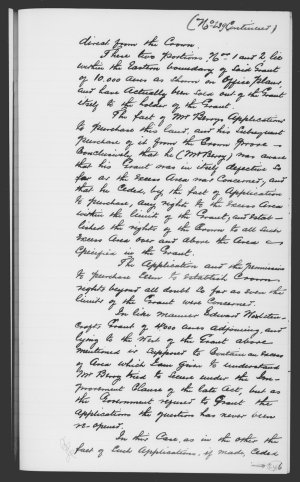 (No 639 Continued)
direct from the Crown.
These two portions, Nos 1 and 2 lie
within the Eastern boundary of said Grant
of 10.000 Acres as shown on Office plans
and have actually been sold out of the Grant
to the holder of the Grant.
The fact of Mr Berry's Applications
to purchase this land, and his subsequent
purchase of it from the Crown prove
Conclusively that he (Mr Berry) was aware
that his Grant was in defective so
far as the excess Area was Concerned, and
that he Ceded, by the fact of Application
to purchase, any rights to the Excess Area
within the limits of the Grant, and estab-
lished the rights of the Crown to all such
Excess Area over and above the Area as
Specified in the Grant.
The Application and the permission
to purchase seem to establish Crown
rights beyond all doubt so far as even the
limits of the Grant were Concerned.
In like manner Edward Wollsten-
croft's Grant of 4000 acres adjoining, and
lying to the West of the Grant above
mentioned is supposed to Contain an excess
of Area which I am given to understand
Mr Berry tried to secure under the Im-
provement Clause of the late Act, but as
the Government refused to Grant the
Applications the question has never been
re-opened.
In this Case, as in the other the
fact of such Applications, if made, Ceded